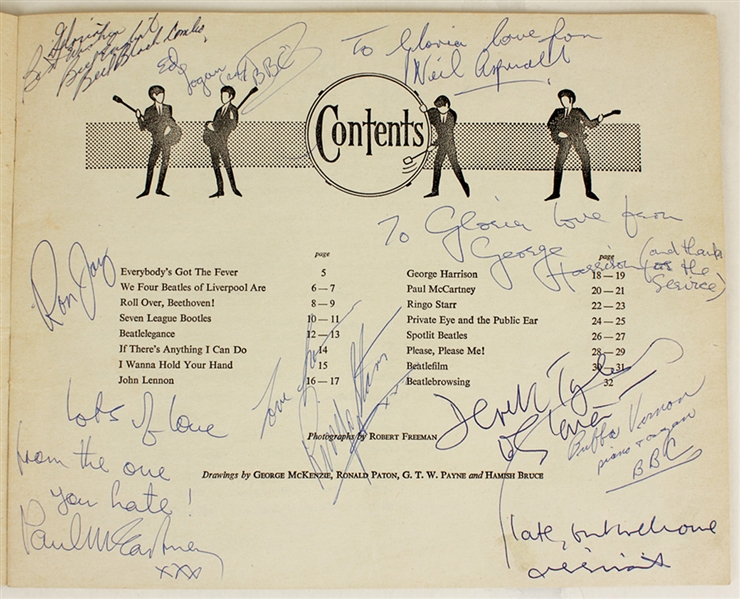 Gloria
To Gloria love from
Neil Aspinall
BBC
Contents
To Gloria love from
George
Harrison (and thanks
for the
Service)
Ron Jay
page
Everybody's Got The Fever 5
We Four Beatles of Liverpool Are 6—7
Roll Over, Beethoven! 8—9
Seven League Bootles 10—11
Beatlelegance 12—13
If There's Anything I Can Do 14
I Wanna Hold Your Hand 15
John Lennon 16—17
page
George Harrison 18—19
Paul McCartney 20—21
Ringo Starr 22—23
Private Eye and the Public Ear 24—25
Spotlit Beatles 26—27
Please, Please Me! 28—29
Beatlefilm 30—31
Beatlebrowsing 32
Love from
xxx
Derek Taylor
Photographs by ROBERT FREEMAN
Drawings by GEORGE MCKENZIE, RONALD PATON, G. T. W. PAYNE and HAMISH BRUCE
Lots of love
from the one
you hate!
Paul McCartney
xxx
Vernon
piano & organ
BBC
late, but welcome